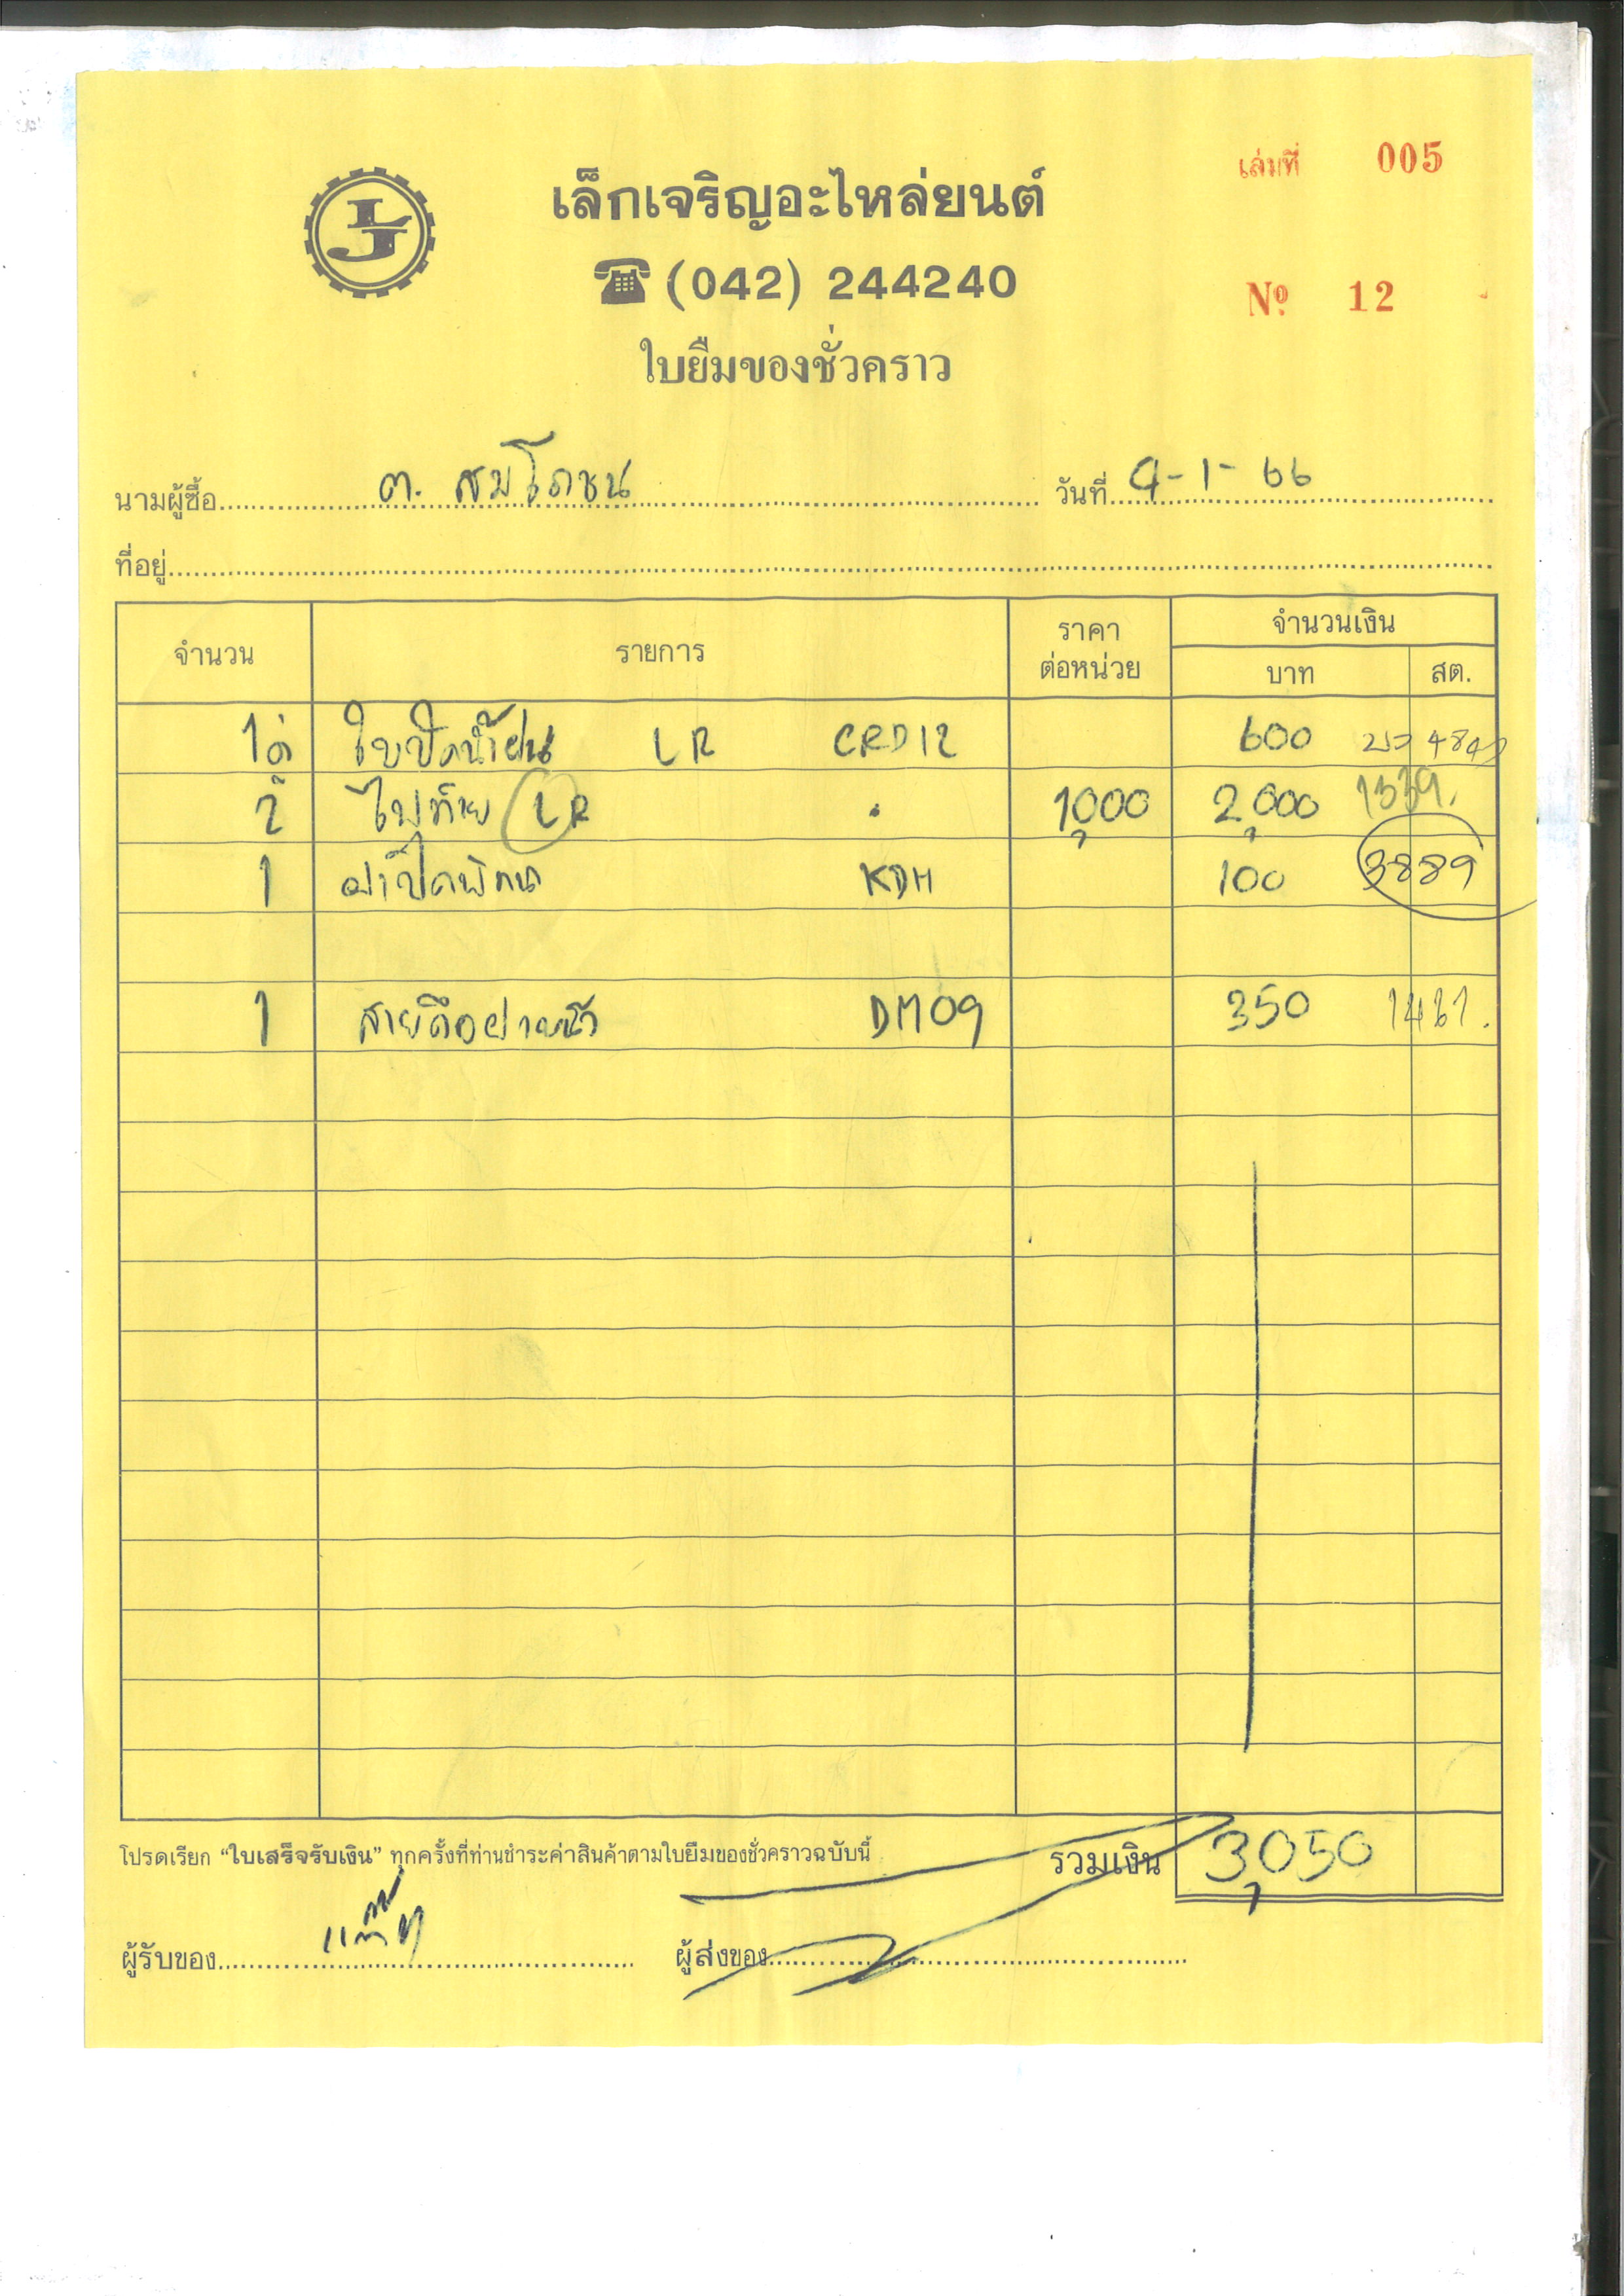 เล่มที่ 005
LJ
เล็กเจริญอะไหล่ยนต์
(042) 244240
Nº 12
ใบยืมของชั่วคราว
นามผู้ซื้อ ต. สมโภชน วันที่ 9-1-66
ที่อยู่
จำนวน รายการ ราคาต่อหน่วย จำนวนเงิน
บาท สต.
1คู่ ใบปัดน้ำฝน LR CRD12 600
2 ไฟท้าย LR 1,000 2,000 1339.
1 KDH 100 3889
1 DM09 350 1461.
โปรดเรียก “ใบเสร็จรับเงิน” ทุกครั้งที่ท่านชำระค่าสินค้าตามใบยืมของชั่วคราวฉบับนี้ รวมเงิน 3,050
ผู้รับของ ผู้ส่งของ